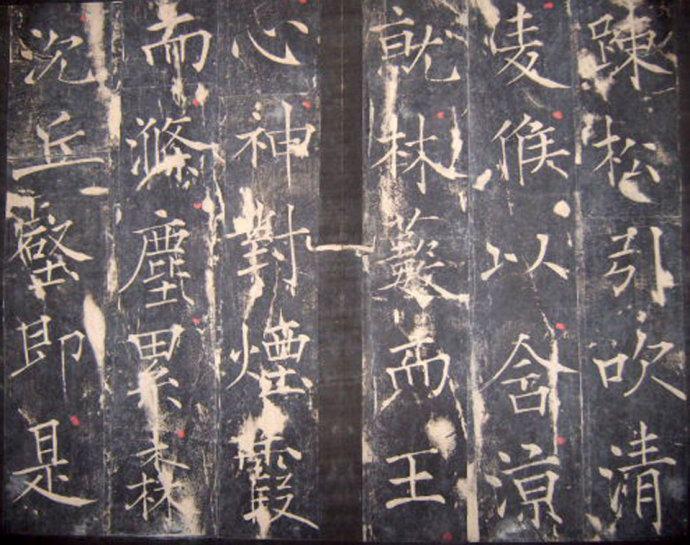 踈松引吹清
麦候以含凉
就林藪而王
心神對煙霞
而滌塵累森
沉丘壑即是